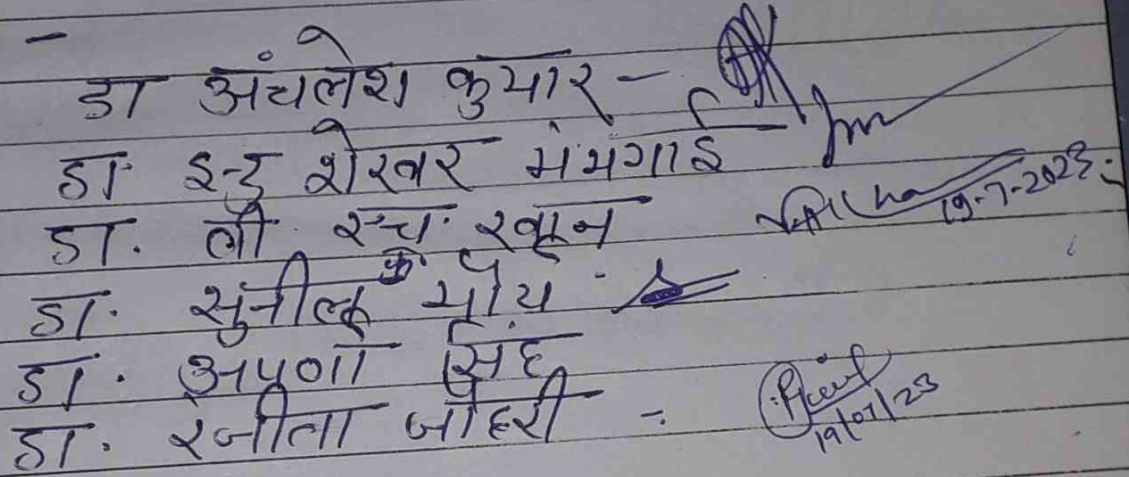 -
डा अंचलेश कुमार -
डा. इन्दु शेखर ममगाई
डा. वी. एच. खान 19-7-2023
डा. सुनील के मौर्य -
डा. अपर्णा सिंह
डा. रंजीता जौहरी - 19/07/23